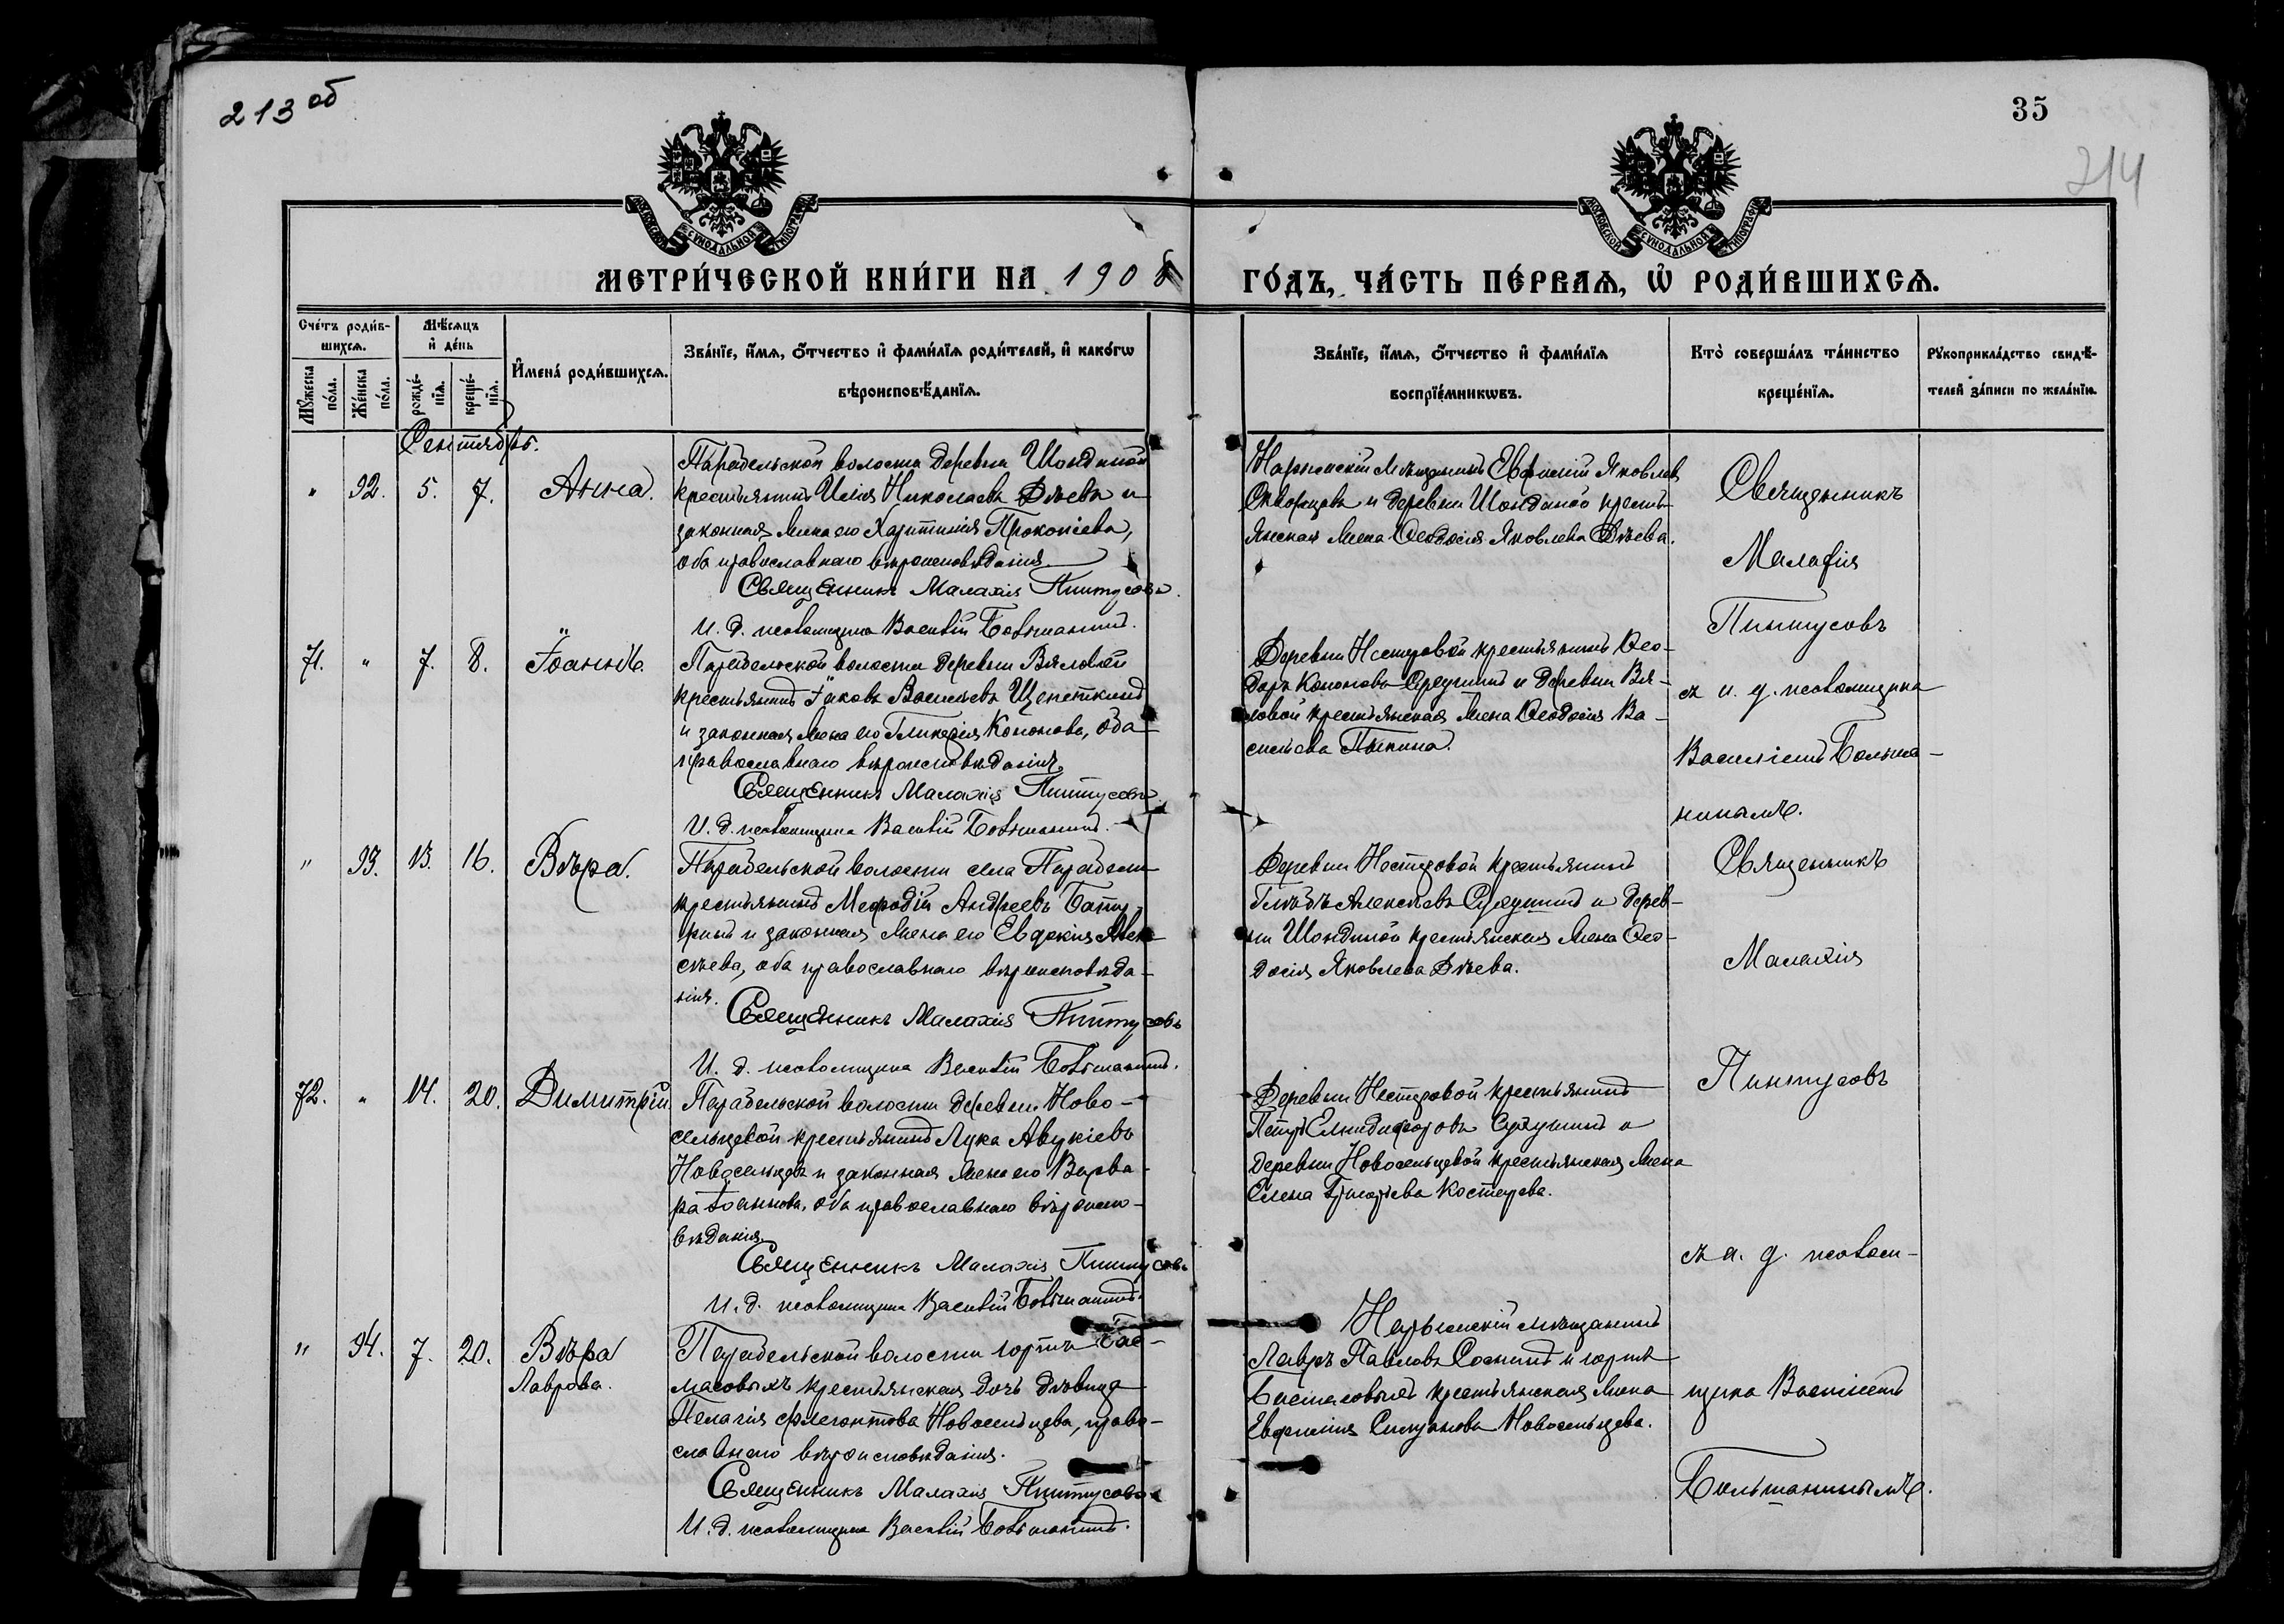 213 об
35
214
МОСКОВСКОЙ СѴНОДАЛЬНОЙ ТИПОГРАФІИ
МОСКОВСКОЙ СѴНОДАЛЬНОЙ ТИПОГРАФІИ
МЕТРИ́ЧЕСКОЙ КНИ́ГИ НА 1908
ГО́ДЪ, ЧА́СТЬ ПЕ́РВАѦ, Ѡ҆ РОДИ́ВШИХСѦ.
Сче́тъ роди́в-
шихсѧ.
Мѣ́сѧцъ
и҆ де́нь
Мꙋ́жеска по́ла.
Же́нска по́ла.
рожде́-
нїѧ.
креще́-
нїѧ.
И҆мена̀ роди́вшихсѧ.
Зва́нїе, и҆́мѧ, ѻ҆́тчество и҆ фами́лїѧ роди́телей, и҆ како́гѡ
вѣроисповѣ́данїѧ.
Зва́нїе, и҆́мѧ, ѻ҆́тчество и҆ фами́лїѧ
воспрїе́мникѡвъ.
Кто̀ соверша́лъ та́инство
креще́нїѧ.
Рꙋкоприкла́дство свидѣ́-
телей за́писи по жела́нїю.
Сентябрь.
" 92. 5. 7. Анна.
Парабельской волости деревни Шондиной
крестьянинъ Илія Николаевъ Дѣевъ и
законная жена его Харитинія Прокопіева,
оба православнаго вѣроисповѣданія.
Священникъ Малахія Пинтусовъ.
И. д. псаломщика Василій Больманинъ.
Нарымскій мѣщанинъ Евфимій Яковлев
Скворцовъ и деревни Шондиной кресть-
янская жена Ѳеодосія Яковлева Дѣева.
Священникъ
Малафія
Пинтусовъ
съ и. д. псаломщика
Василіемъ Больма-
нинымъ.
71. " 7. 8. Іоаннъ.
Парабельской волости деревни Вяловой
крестьянинъ Іаковъ Васильевъ Щепеткинъ
и законная жена его Гликерія Кононова, оба
православнаго вѣроисповѣданія.
Священникъ Малахія Пинтусовъ
И. д. псаломщика Василій Больманинъ.
Деревни Нестеровой крестьянинъ Ѳео-
доръ Кононовъ Сухушинъ и деревни Вя-
ловой крестьянская жена Ѳеодосія Ва-
сильева Пыкина.
" 93. 13. 16. Вѣра.
Парабельской волости села Парабели
крестьянинъ Меѳодій Андреевъ Бату-
ринъ и законная жена его Евдокія Алек-
сѣева, оба православнаго вѣроисповѣда-
нія.
Священникъ Малахія Пинтусовъ
И. д. псаломщика Василій Больманинъ.
Деревни Нестеровой крестьянинъ
Глѣбъ Алексѣевъ Сухушинъ и дерев-
ни Шондиной крестьянская жена Ѳео-
досія Яковлева Дѣева.
Священникъ
Малахія
Пинтусовъ
съ и. д. псалом-
щика Василіемъ
Больманинымъ.
72. " 14. 20. Димитрій
Парабельской волости деревни Ново-
сельцевой крестьянинъ Лука
Новосельцевъ и законная жена его Варва-
ра Іоаннова, оба православнаго вѣроиспо-
вѣданія.
Священникъ Малахія Пинтусовъ
И. д. псаломщика Василій Больманинъ.
Деревни Нестеровой крестьянинъ
Петръ Елпидифоровъ Сухушинъ и
деревни Новосельцевой крестьянская жена
Елена Григорьева Костарева.
" 94. 7. 20. Вѣра
Лаврова.
Парабельской волости юртъ Бас-
масовыхъ крестьянская дочь дѣвица
Пелагія Флегонтова Новосельцева, право-
славнаго вѣроисповѣданія.
Священникъ Малахія Пинтусовъ
И. д. псаломщика Василій Больманинъ.
Нарымскій мѣщанинъ
Лавръ Павловъ Соснинъ и юртъ
Басмасовыхъ крестьянская жена
Евфимія Силуанова Новосельцева.